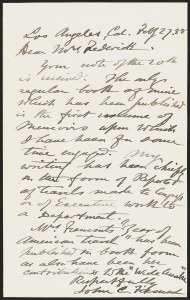 Los Angeles, Cal. Feby 27. 88
Dear Mrs. Frederick.
Your note of the 20th
is received. The only
regular book of mine
which has been published
is the first volume of
Memoirs upon which
I have been for some
time engaged. My
writing has been chiefly
in the form of Reports
of travels made to Congress
or of Executive work to
a Department.
Mrs. Fremont's "Year of
American Travel" has been
published in book form
as also have been her
contributions to the "Wide Awake"
Respectfully
John C. Frémont